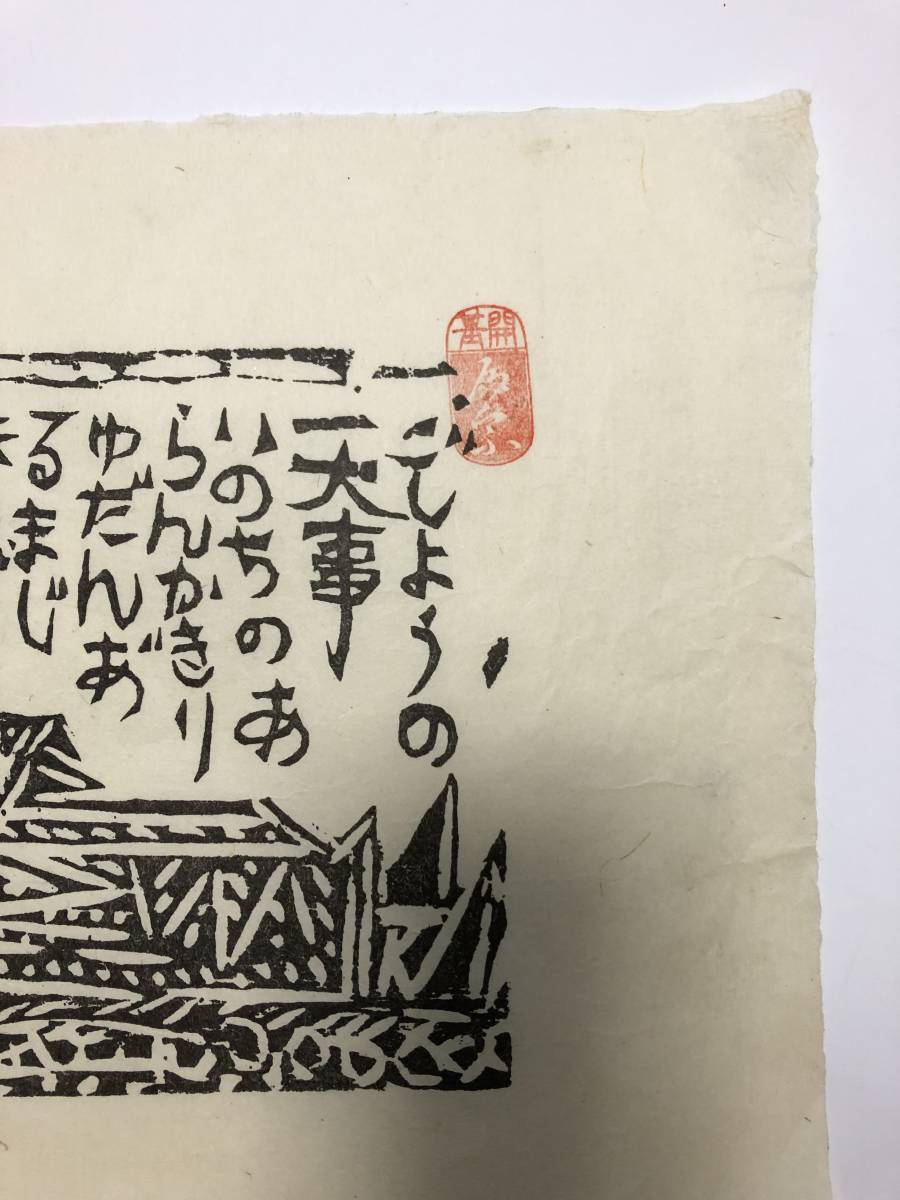 開基
ごしようの
一大事
いのちのあ
らんかぎり
ゆだんあ
るまじ